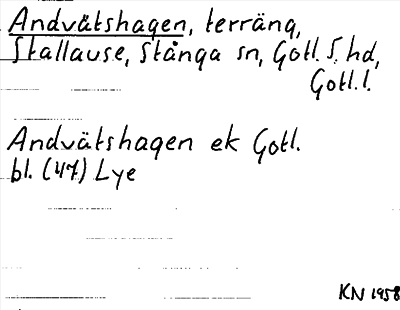 Andvätshagen, terräng,
Stallause, Stånga sn, Gotl. S. hd,
Gotl. l.
Andvätshagen ek Gotl.
bl. (47) Lye
KN 1958